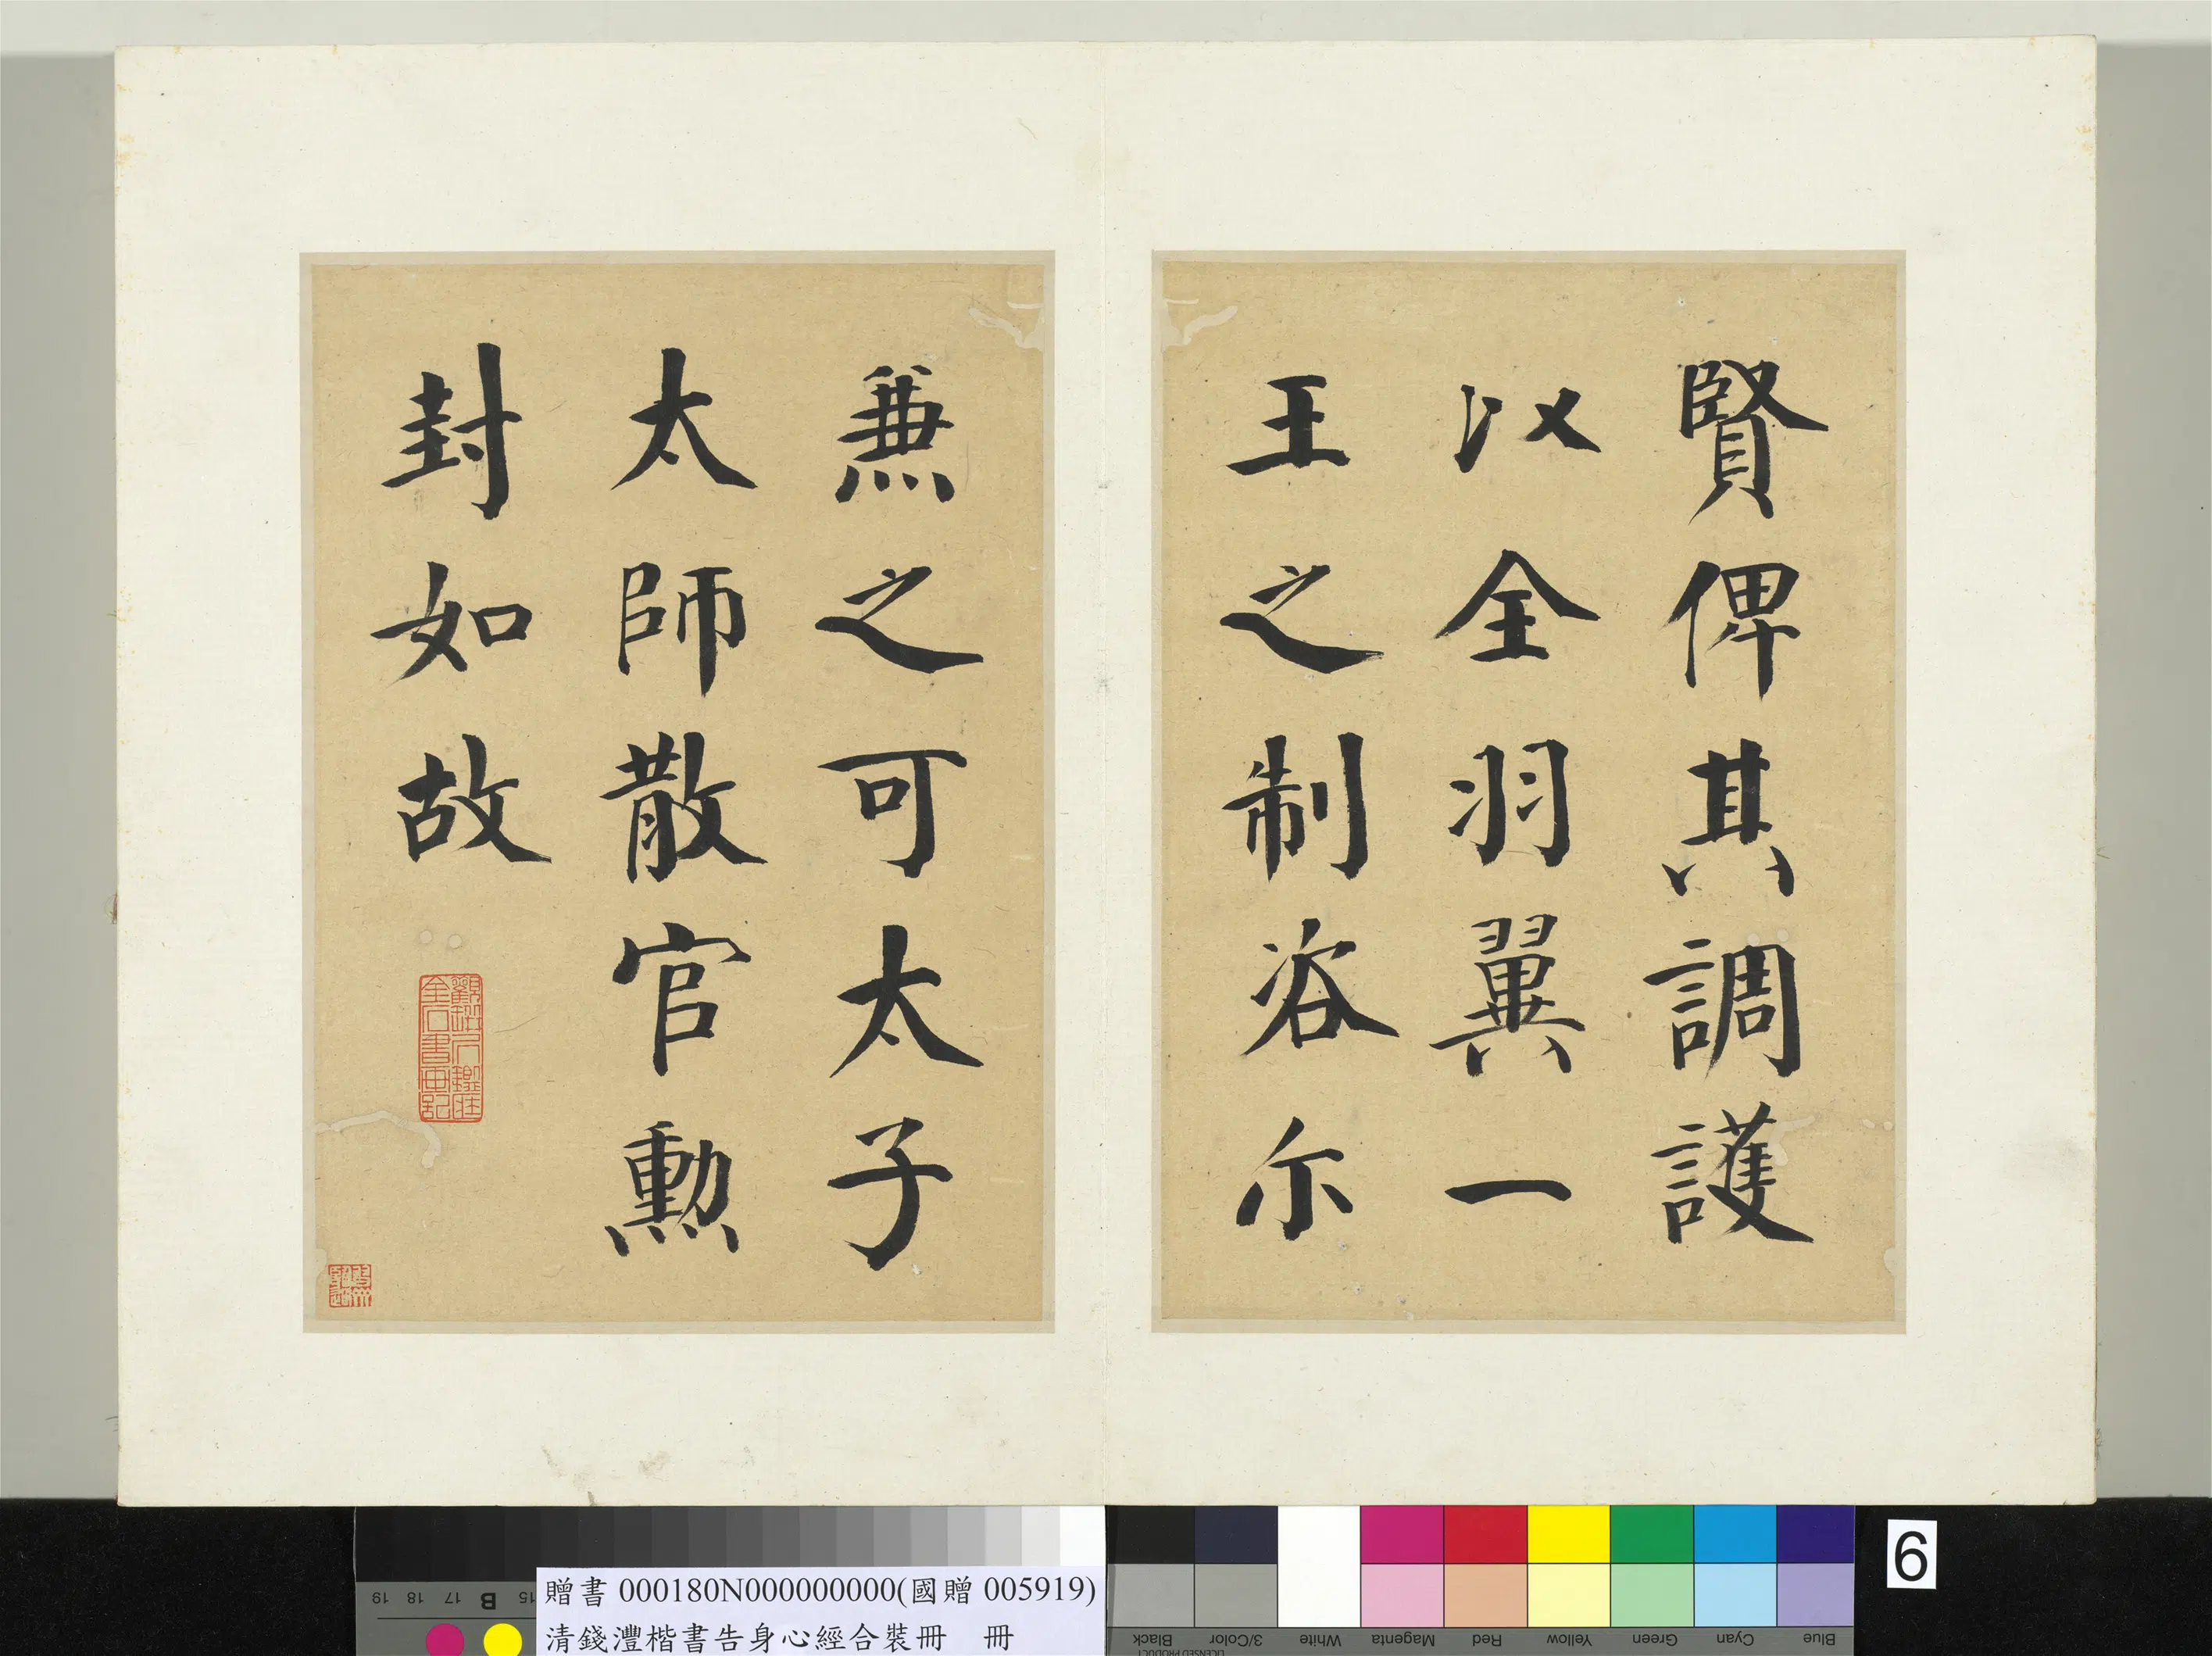 賢俾其調護
以全羽翼一
王之制咨尔
兼之可太子
太師散官勳
封如故
贈書 000180N000000000(國贈 005919)
清錢灃楷書告身心經合裝冊 冊
19 18 17 B 15
Black 3/Color White Magenta Red Yellow Green Cyan Blue
LICENSED PRODUCT
6